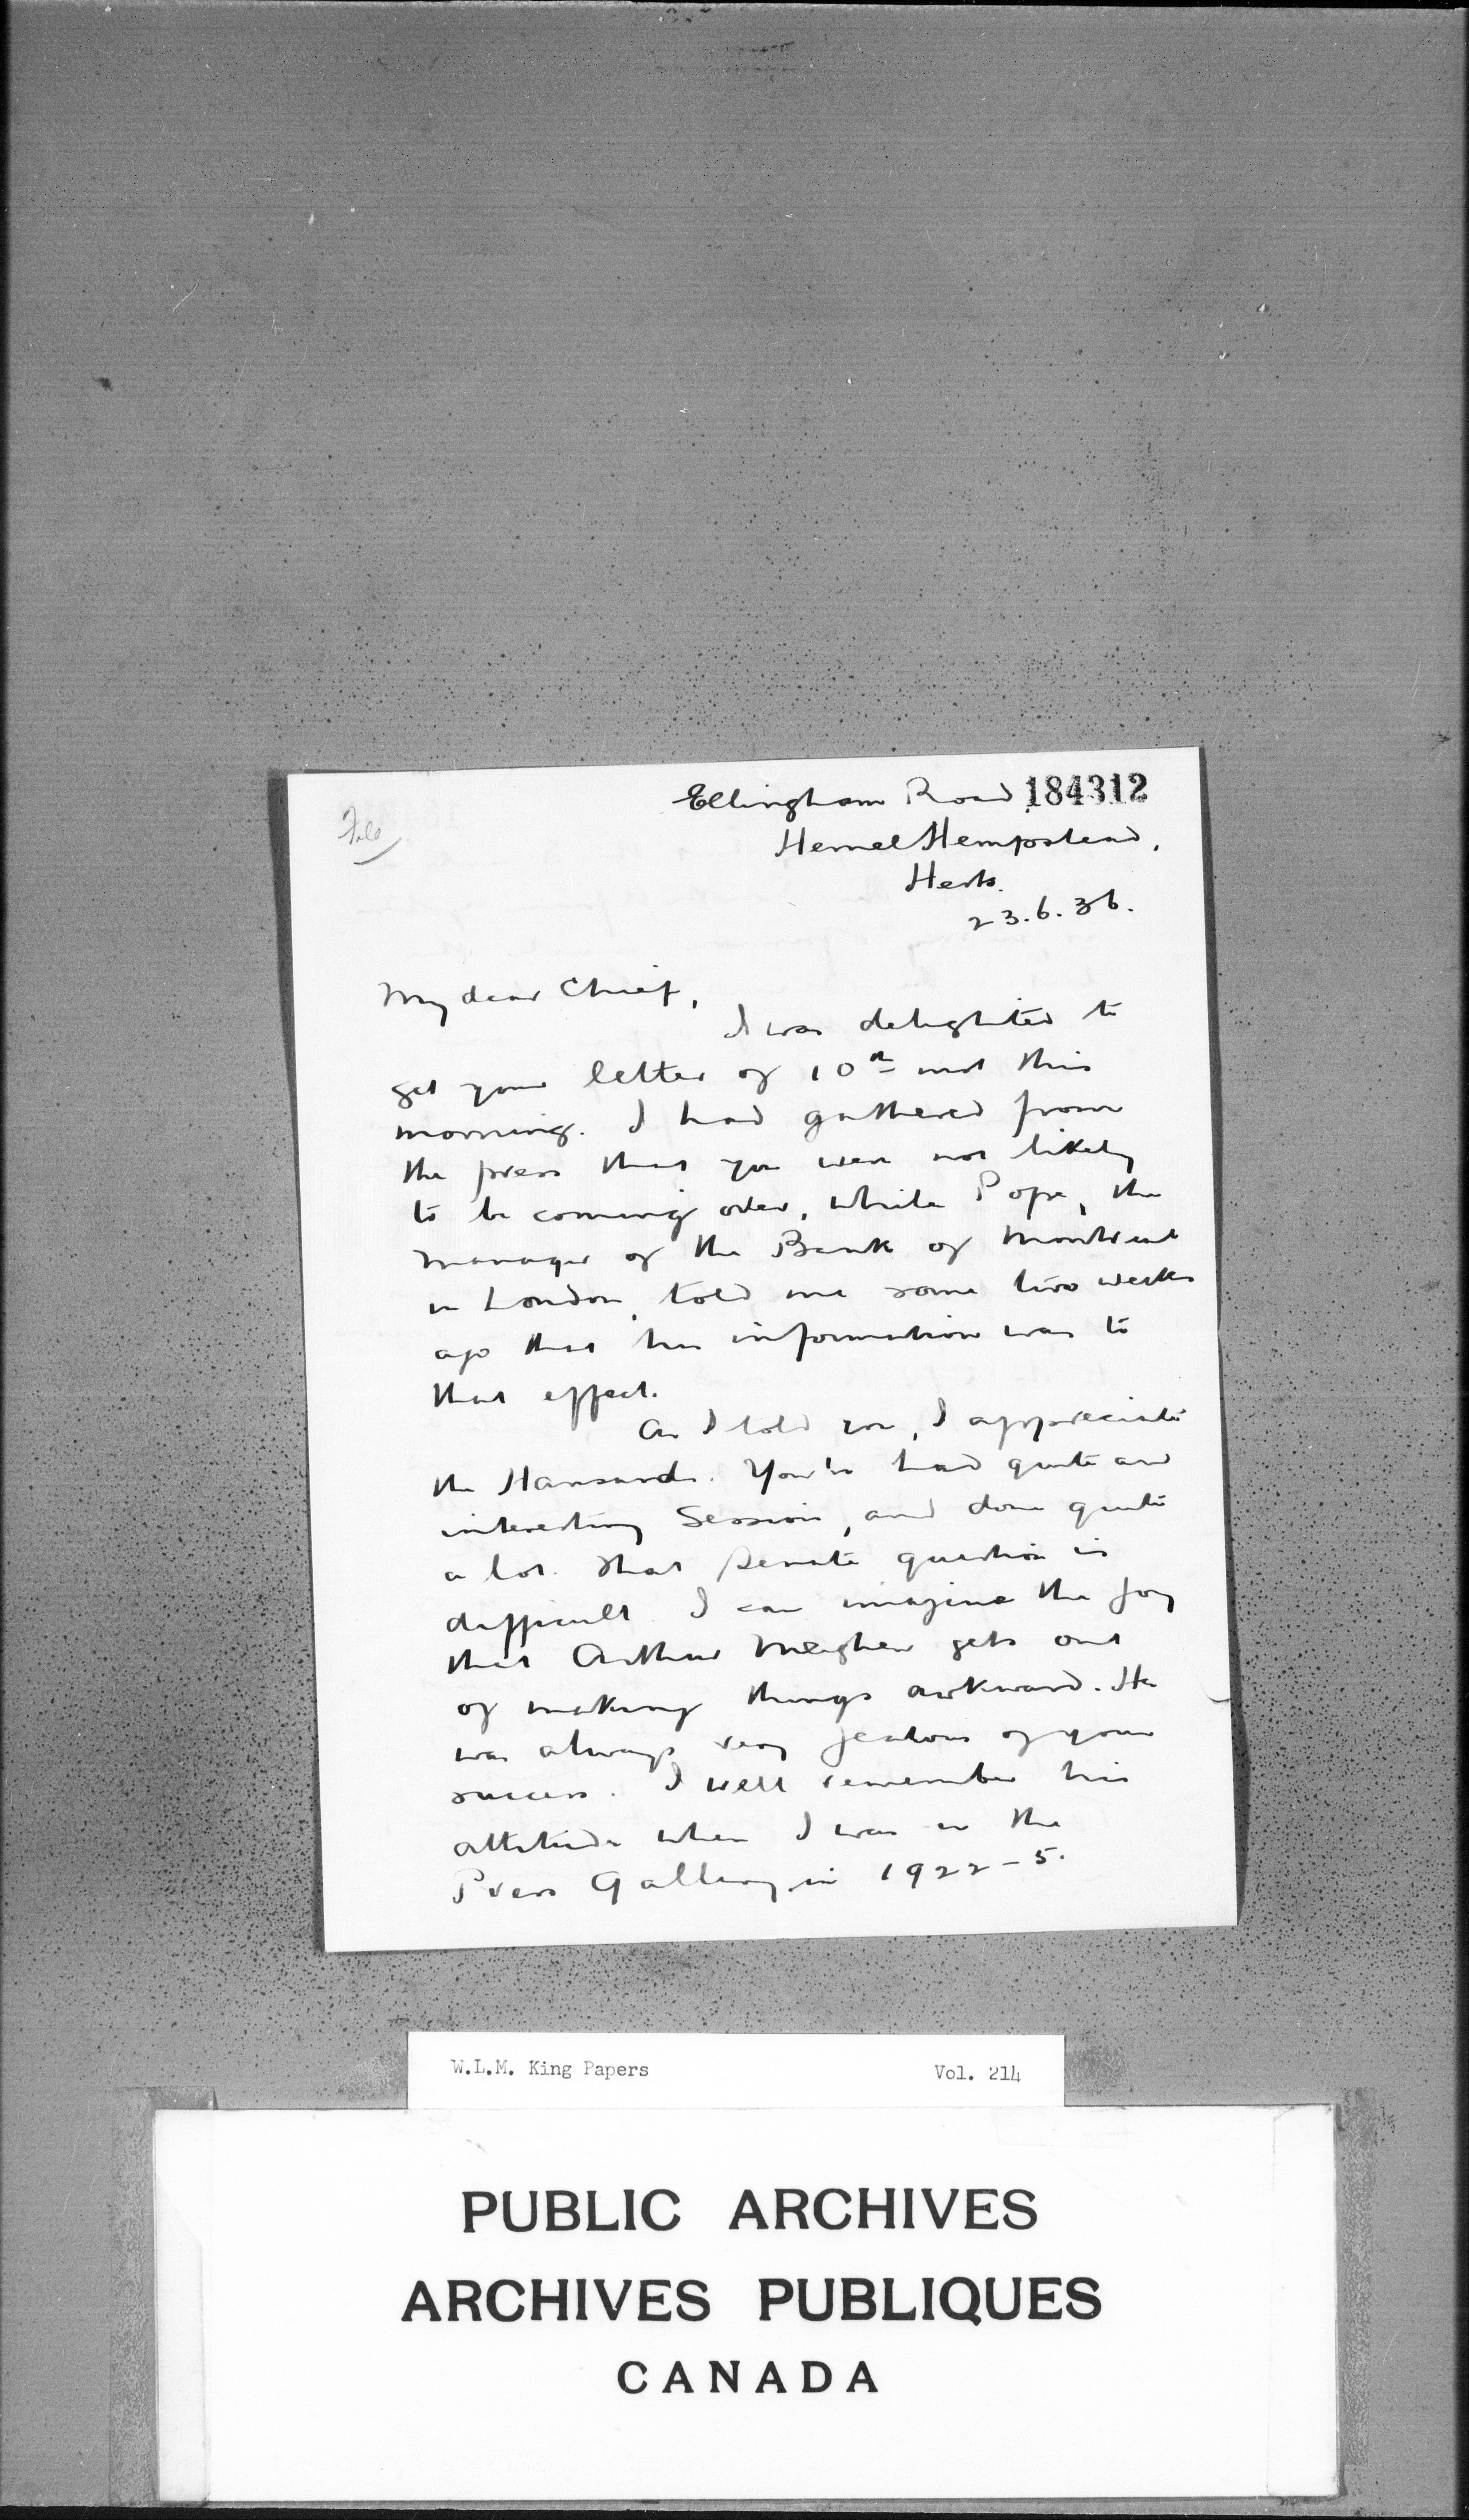 File
Ellingham Road 184312
Hemel Hempstead,
Herts.
23.6.36.
My dear Chief,
I was delighted to
get your letter of 10th inst this
morning. I had gathered from
the press that you were not likely
to be coming over, while Pope, the
manager of the Bank of Montreal
in London, told me some two weeks
ago that his information was to
that effect.
As I told you, I appreciate
the Hansards. You've had quite an
interesting Session, and done quite
a lot. That Senate question is
difficult. I can imagine the joy
that Arthur Meighen gets out
of making things awkward. He
was always very jealous of your
success. I well remember his
attitude when I was in the
Press Gallery in 1922-5.
W.L.M. King Papers Vol. 214
PUBLIC ARCHIVES
ARCHIVES PUBLIQUES
CANADA